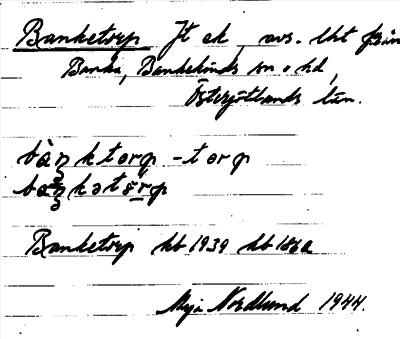 Banketorp Jt ek, avs. lht från
Banka, Bankekinds sn o hd,
Östergötlands län.
bàŋktorp -torp
baŋkətorp
Banketorp kb 1939 hb 1862
Maja Nordlund 1944.